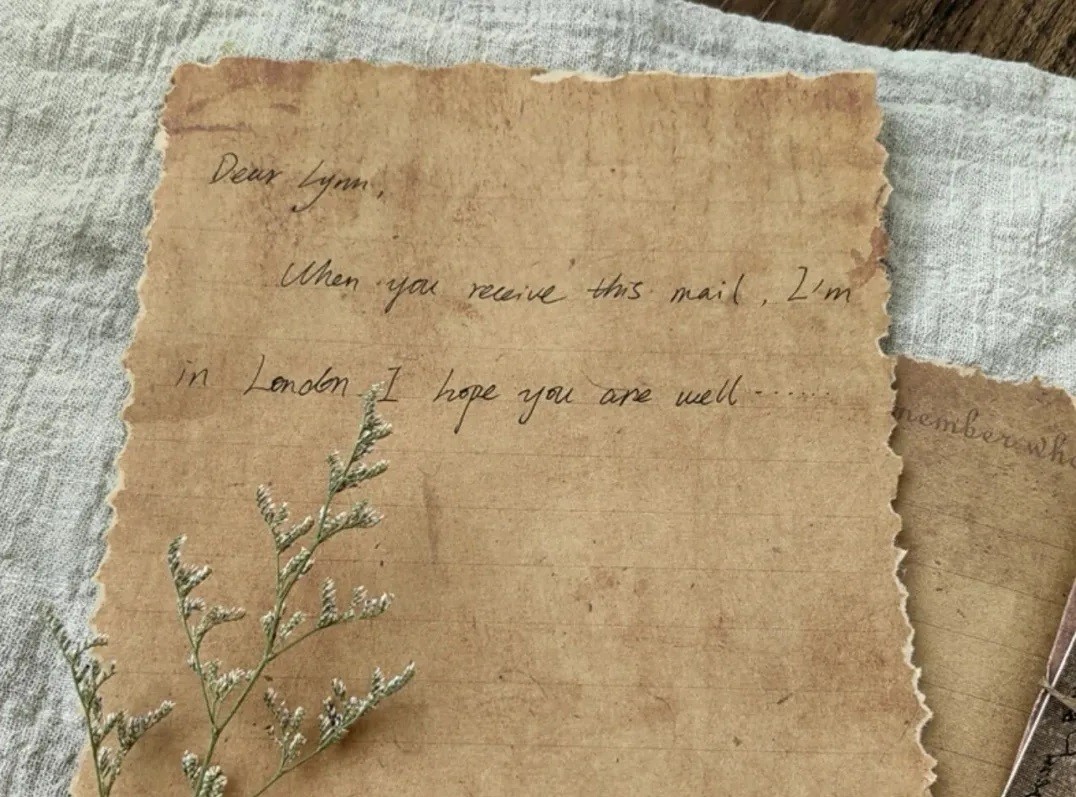 Dear Lynn,
When you receive this mail, I'm
in London I hope you are well......